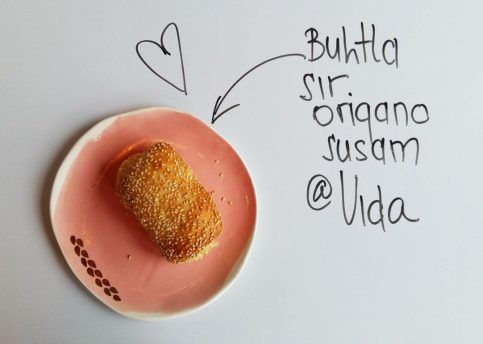 Buhtla
sir
origano
susam
@ Vida